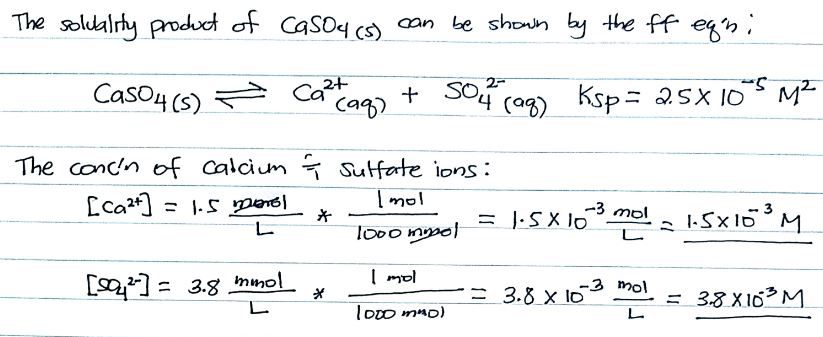 The solubility product of CaSO4(s) can be shown by the ff eq'n:
CaSO4(s) ⇌ Ca²⁺(aq) + SO₄²⁻(aq) Ksp = 2.5 X 10⁻⁵ M²
The conc'n of calcium & sulfate ions:
[Ca²⁺] = 1.5 mmol/L * 1 mol/1000 mmol = 1.5 X 10⁻³ mol/L = 1.5 x 10⁻³ M
[SO₄²⁻] = 3.8 mmol/L * 1 mol/1000 mmol = 3.8 X 10⁻³ mol/L = 3.8 X 10⁻³ M